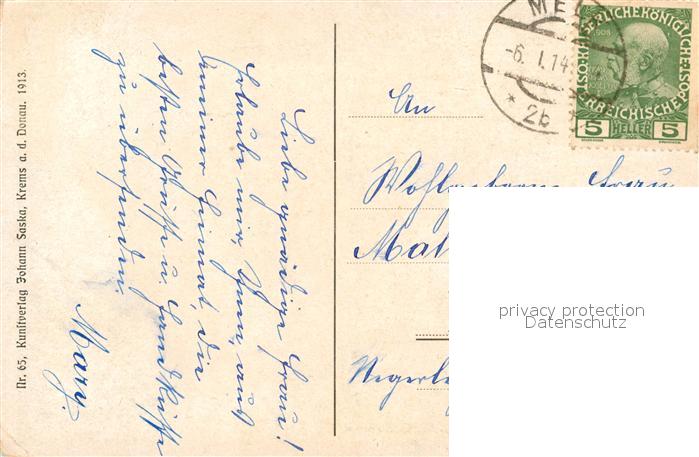 Nr. 65, Kunstverlag Johann Saska, Krems a. d. Donau. 1913.
Liebe gnädige Frau!
Erlaube mir, Ihnen, aus
meiner Heimat, die
besten Grüße u. Handküsse
zu übersenden.
Mary.
ME
-6. I. 14
* 2b
KAISERLICHE KÖNIGLICHE ÖSTERREICHISCHE POST
1908
5 HELLER 5
An
Wohlgeboren Frau
Mal
privacy protection
Datenschutz